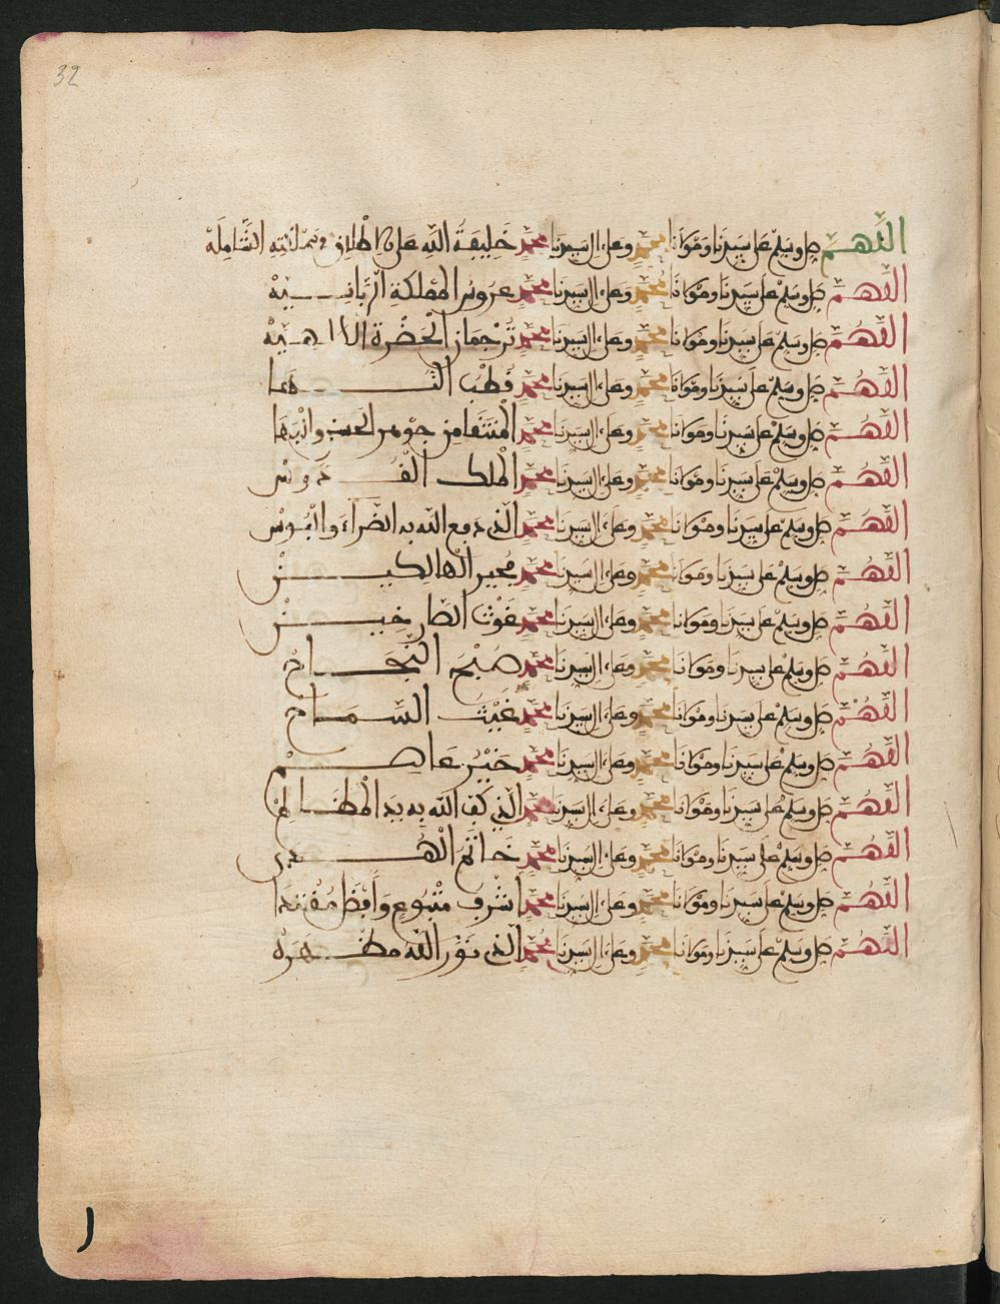 32
اللهم صل وسلم على سيدنا ومولانا محمد وعلى ال سيدنا محمد خليفة الله على الاطلاق ومملكته الشاملة
اللهم صل وسلم على سيدنا ومولانا محمد وعلى ال سيدنا محمد عروس المملكة الربانية
اللهم صل وسلم على سيدنا ومولانا محمد وعلى ال سيدنا محمد ترجمان الحضرة الالاهية
اللهم صل وسلم على سيدنا ومولانا محمد وعلى ال سيدنا محمد قطب
اللهم صل وسلم على سيدنا ومولانا محمد وعلى ال سيدنا محمد المنتقا من جوهر الحسن والبها
اللهم صل وسلم على سيدنا ومولانا محمد وعلى ال سيدنا محمد الملك القدوس
اللهم صل وسلم على سيدنا ومولانا محمد وعلى ال سيدنا محمد الذي دفع الله به الضراء والبوس
اللهم صل وسلم على سيدنا ومولانا محمد وعلى ال سيدنا محمد مجير الهالكين
اللهم صل وسلم على سيدنا ومولانا محمد وعلى ال سيدنا محمد غوث الصارخين
اللهم صل وسلم على سيدنا ومولانا محمد وعلى ال سيدنا محمد صبح النجاح
اللهم صل وسلم على سيدنا ومولانا محمد وعلى ال سيدنا محمد غيث السماح
اللهم صل وسلم على سيدنا ومولانا محمد وعلى ال سيدنا محمد خير عاصم
اللهم صل وسلم على سيدنا ومولانا محمد وعلى ال سيدنا محمد الذي كف الله به يد المظالم
اللهم صل وسلم على سيدنا ومولانا محمد وعلى ال سيدنا محمد خاتم الهدى
اللهم صل وسلم على سيدنا ومولانا محمد وعلى ال سيدنا محمد اشرف متبوع وأفضل مقتدا
اللهم صل وسلم على سيدنا ومولانا محمد وعلى ال سيدنا محمد الذي نور الله مظهره